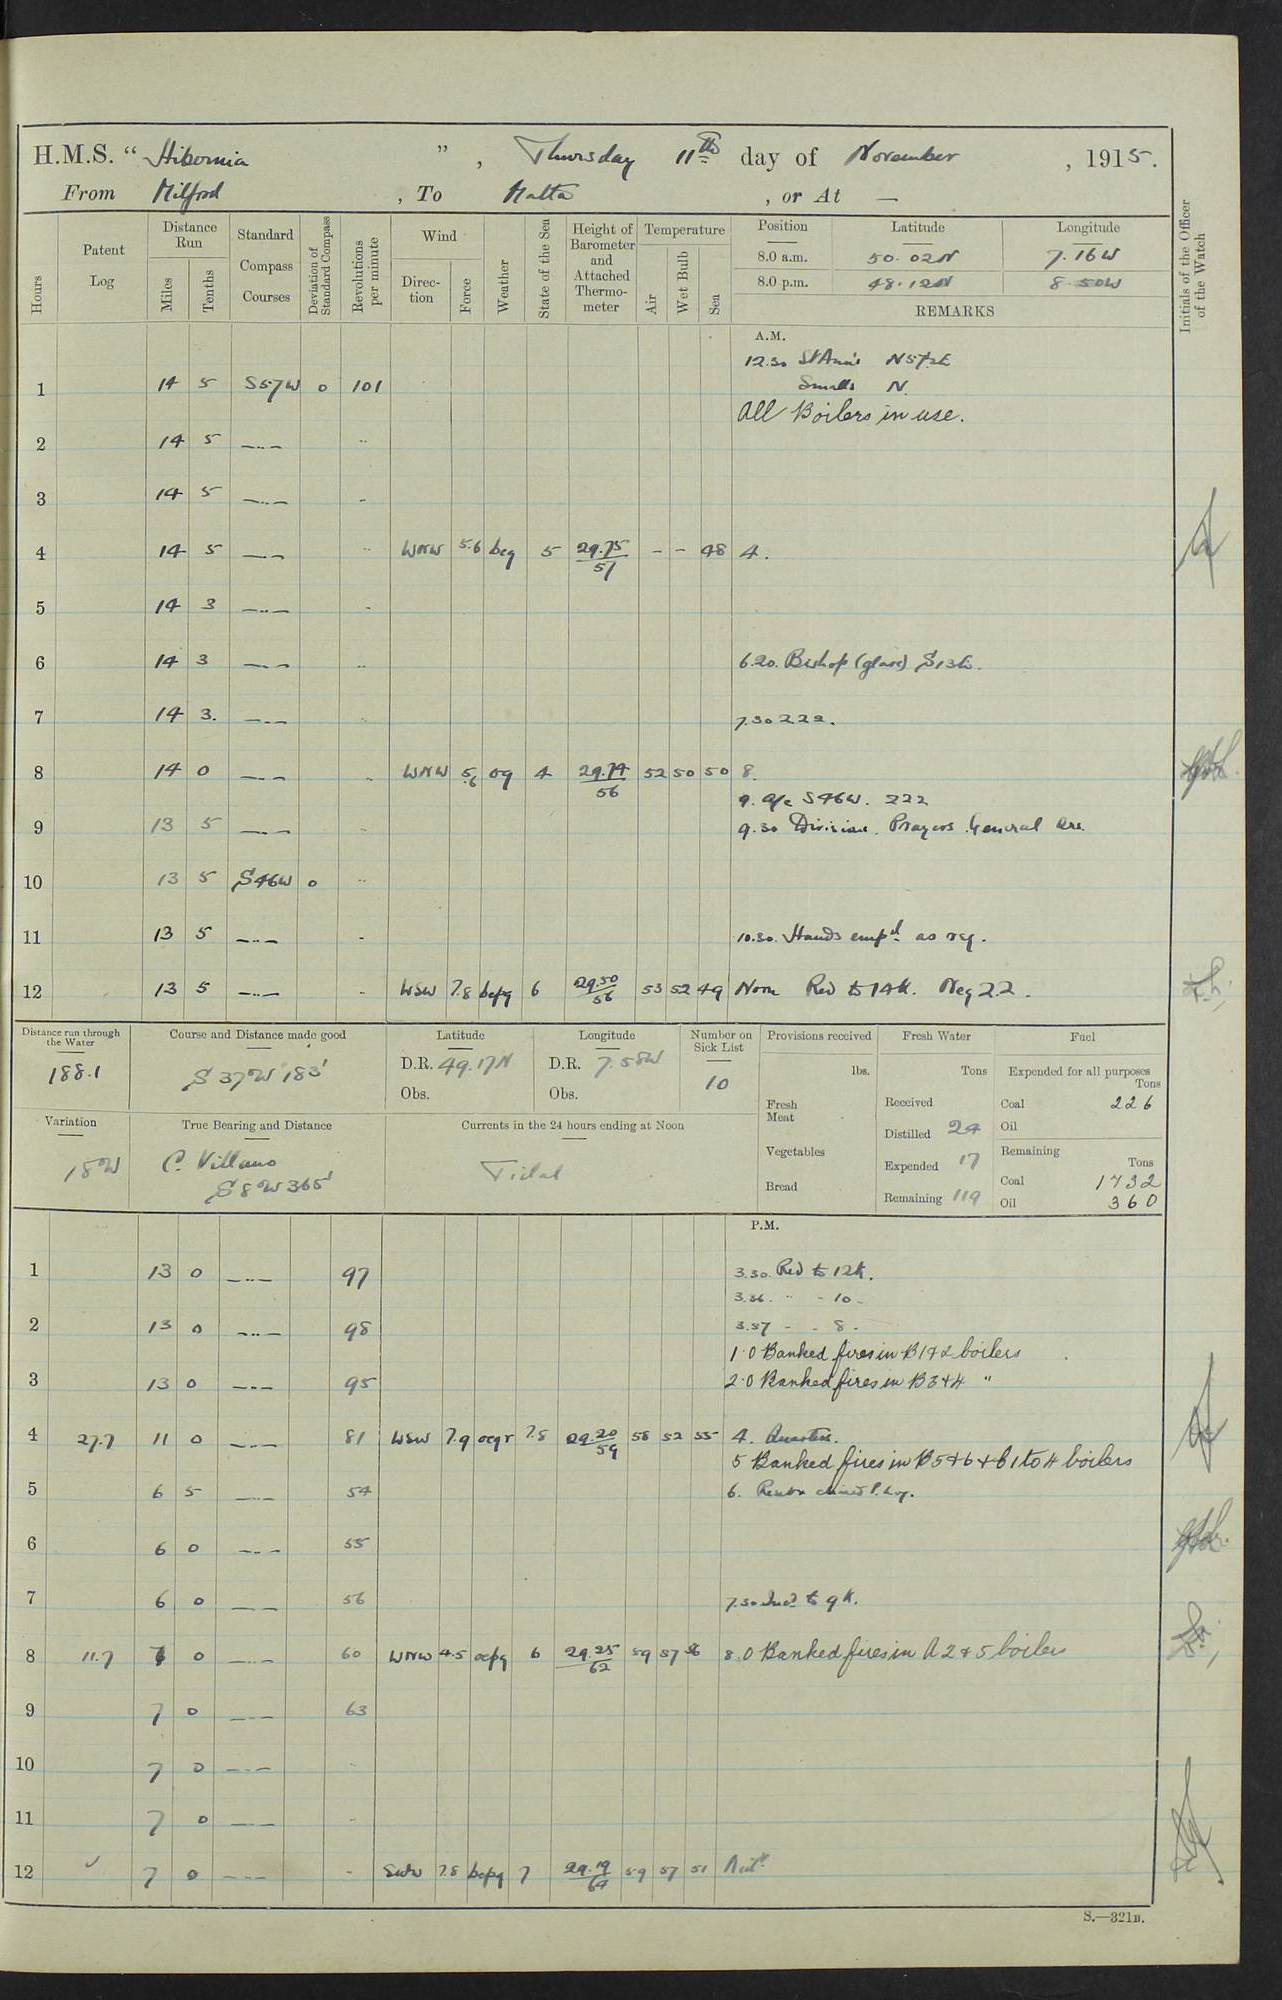 H.M.S. “ Hibernia ” , Thursday 11th day of November , 1915.
From Milford , To Malta , or At —
Hours
Patent Log
Distance Run
Miles
Tenths
Standard Compass Courses
Deviation of Standard Compass
Revolutions per minute
Wind
Direction
Force
Weather
State of the Sea
Height of Barometer and Attached Thermometer
Temperature
Air
Wet Bulb
Sea
Position
Latitude
Longitude
8.0 a.m. 50.02N 7.16W
8.0 p.m. 48.12N 8.50W
REMARKS
Initials of the Officer of the Watch
A.M.
12.30 St Ann's
Smalls N.
1 14 5 S57W 0 101
All Boilers in use.
2 14 5 —..— ..
3 14 5 —..— ..
4 14 5 —..— .. WNW 5.6 bcq 5 29.75/57 - - 48 4.
5 14 3 —..— ..
6 14 3 —..— .. 6.20. Bishop (glare) S13E.
7 14 3. —..— .. 7.30 222.
8 14 0 —..— .. WNW 5.6 oq 4 29.74/56 52 50 50 8.
9. a/c S46W. 222
9 13 5 —..— .. 9.30 Divisions. Prayers. General
10 13 5 S46W 0 ..
11 13 5 —..— .. 10.30. Hands empd. as req.
12 13 5 —..— .. WSW 7.8 bcpq 6 29.50/56 53 52 49 Noon Red to 14k. Neg 22.
Distance run through the Water
188.1
Course and Distance made good
S 37W 183'
Latitude
D.R. 49.17N
Obs.
Longitude
D.R. 7.58W
Obs.
Number on Sick List
10
Provisions received
lbs.
Fresh Meat
Vegetables
Bread
Fresh Water
Tons
Received
Distilled 24
Expended 17
Remaining 119
Fuel
Expended for all purposes
Tons
Coal 226
Oil
Remaining
Tons
Coal 1732
Oil 360
Variation
18W
True Bearing and Distance
C. Villano
S 8W 365'
Currents in the 24 hours ending at Noon
Tidal
P.M.
1 13 0 —..— 97 3.30. Red to 12k.
3.36. " - 10 -
2 13 0 —..— 98 3.57 - - 8 -
1.0 Banked fires in B1&2 boilers
3 13 0 —..— 95 2.0 Banked fires in B3&4 "
4 27.7 11 0 —..— 81 WSW 7.9 ocqr 7.8 29.20/59 58 52 55 4. Quarters.
5 Banked fires in B5&6 & C1 to 4 boilers
5 6 5 —..— 54 6. P. Log.
6 6 0 —..— 55
7 6 0 —..— 56 7.30 Incd. to 9k.
8 11.7 7 0 —..— 60 WNW 4.5 ocpq 6 29.25/62 59 57 56 8.0 Banked fires in A2 & 5 boilers
9 7 0 —..— 63
10 7 0 —..— ..
11 7 0 —..— ..
12 7 0 —..— - SWW 7.8 bcpq 7 29.19/64 59 57 51
S.—321B.